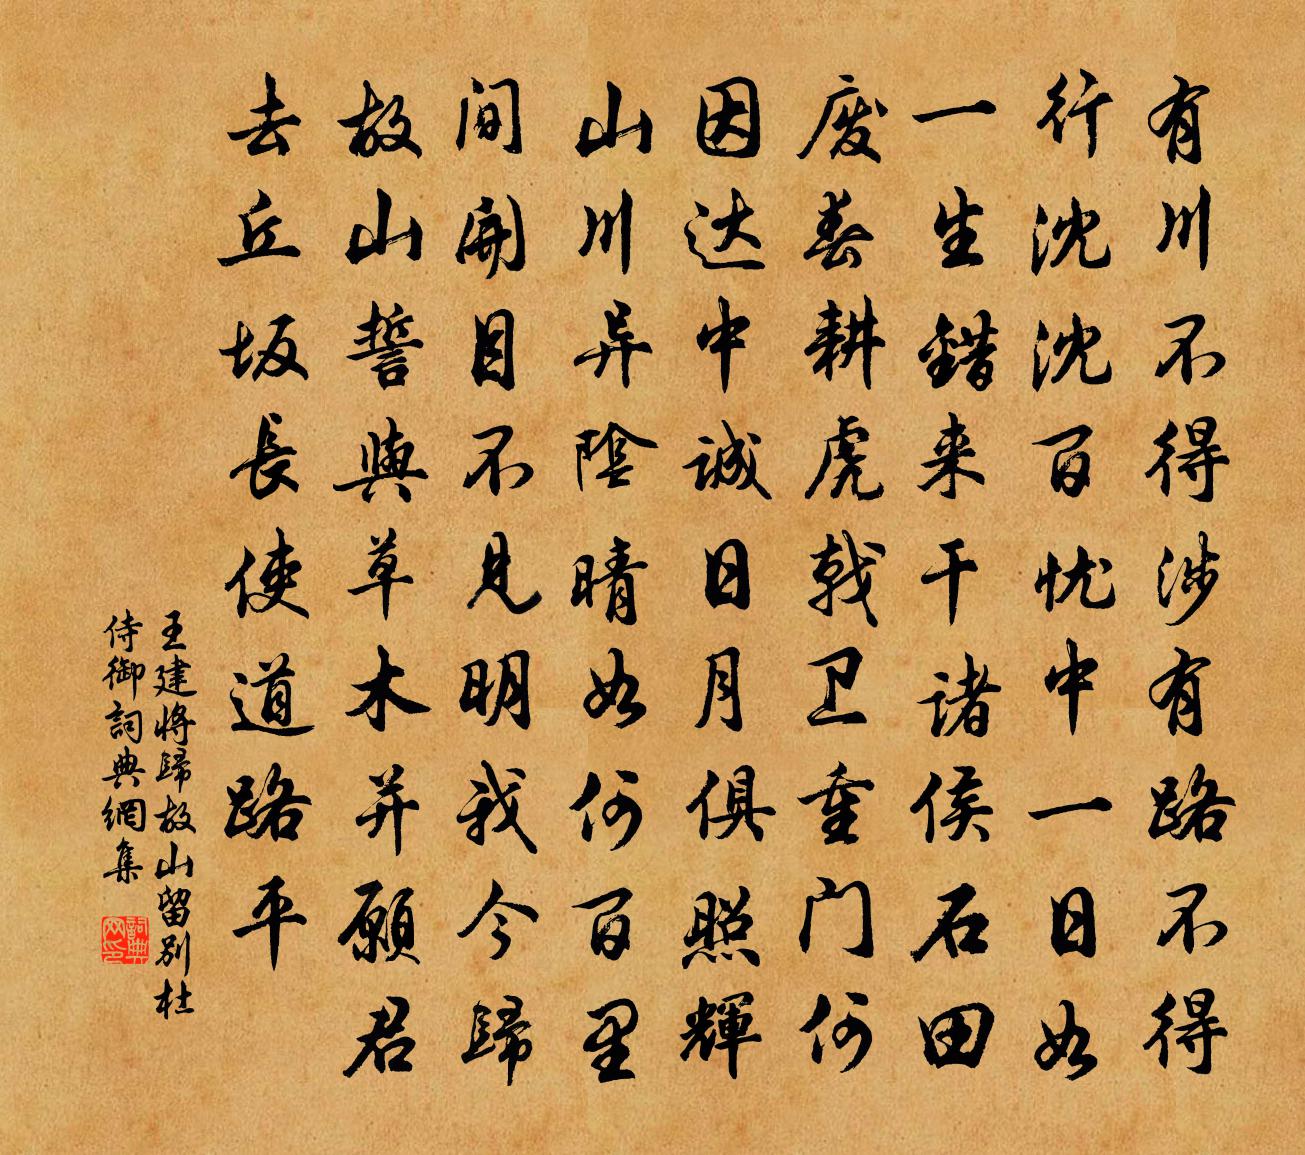 有川不得涉有路不得
行沈沈百忧中一日如
一生錯来干諸侯石田
废春耕虎戟卫重门何
因达中誠日月俱照輝
山川异陰晴如何百里
间開目不見明我今歸
故山誓與草木并願君
去丘坂長使道路平
王建將歸故山留別杜
侍御詞典網集
詞典
网印